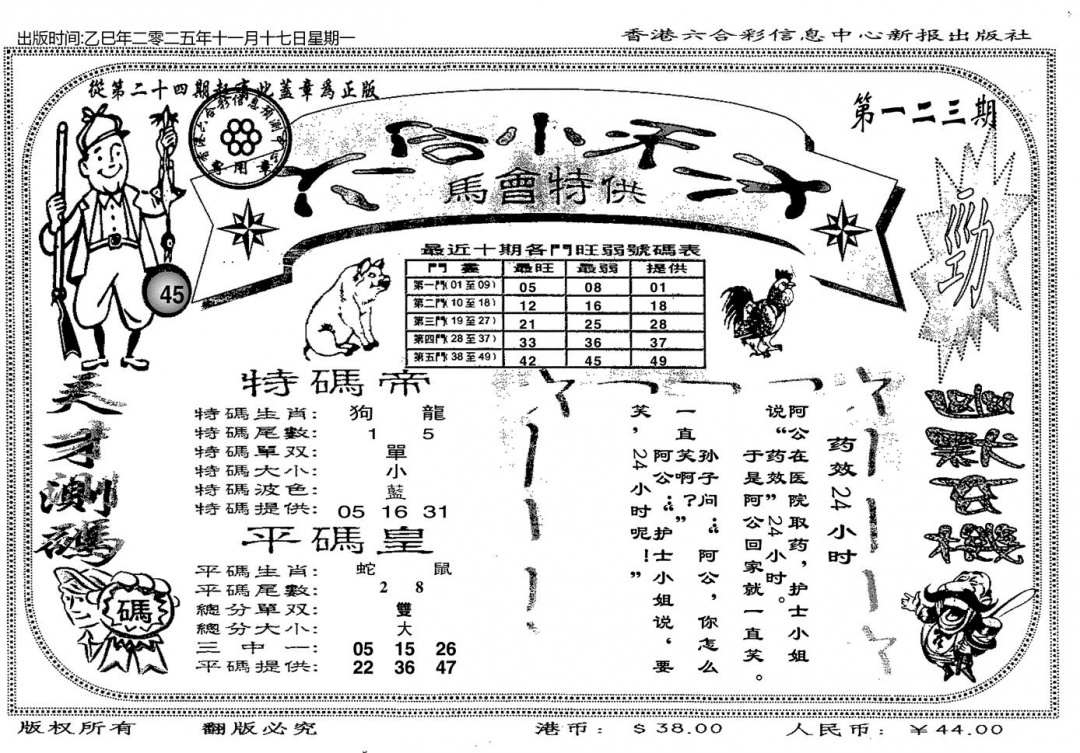 出版时间:乙巳年二零二五年十一月十七日星期一
香港六合彩信息中心新报出版社
從第二十四期起有此蓋章爲正版
第一二三期
專用章
六合小天才
馬會特供
勁
45
最近十期各門旺弱號碼表
門畫 最旺 最弱 提供
第一門(01至09) 05 08 01
第二門(10至18) 12 16 18
第三門(19至27) 21 25 28
第四門(28至37) 33 36 37
第五門(38至49) 42 45 49
天才測碼
特碼帝
特碼生肖: 狗 龍
特碼尾數: 1 5
特碼單双: 單
特碼大小: 小
特碼波色: 藍
特碼提供: 05 16 31
平碼皇
平碼生肖: 蛇 鼠
平碼尾數: 2 8
總分單双: 雙
總分大小: 大
三中一: 05 15 26
平碼提供: 22 36 47
碼
药效24小时
阿公在医院取药，护士小姐
说“药效”24小时。
于是阿公回家就一直笑。
孙子问：“阿公，你怎么
一直笑啊？”
阿公：“护士小姐说，要
笑，24小时呢！”
幽默玄機
版权所有
翻版必究
港币: $38.00
人民币: ¥44.00